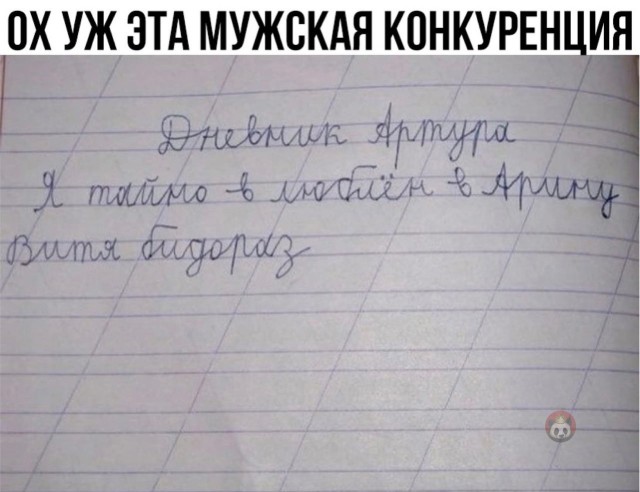 ОХ УЖ ЭТА МУЖСКАЯ КОНКУРЕНЦИЯ
Дневник Артура
Я тайно в люблён в Арину
Витя бидораз